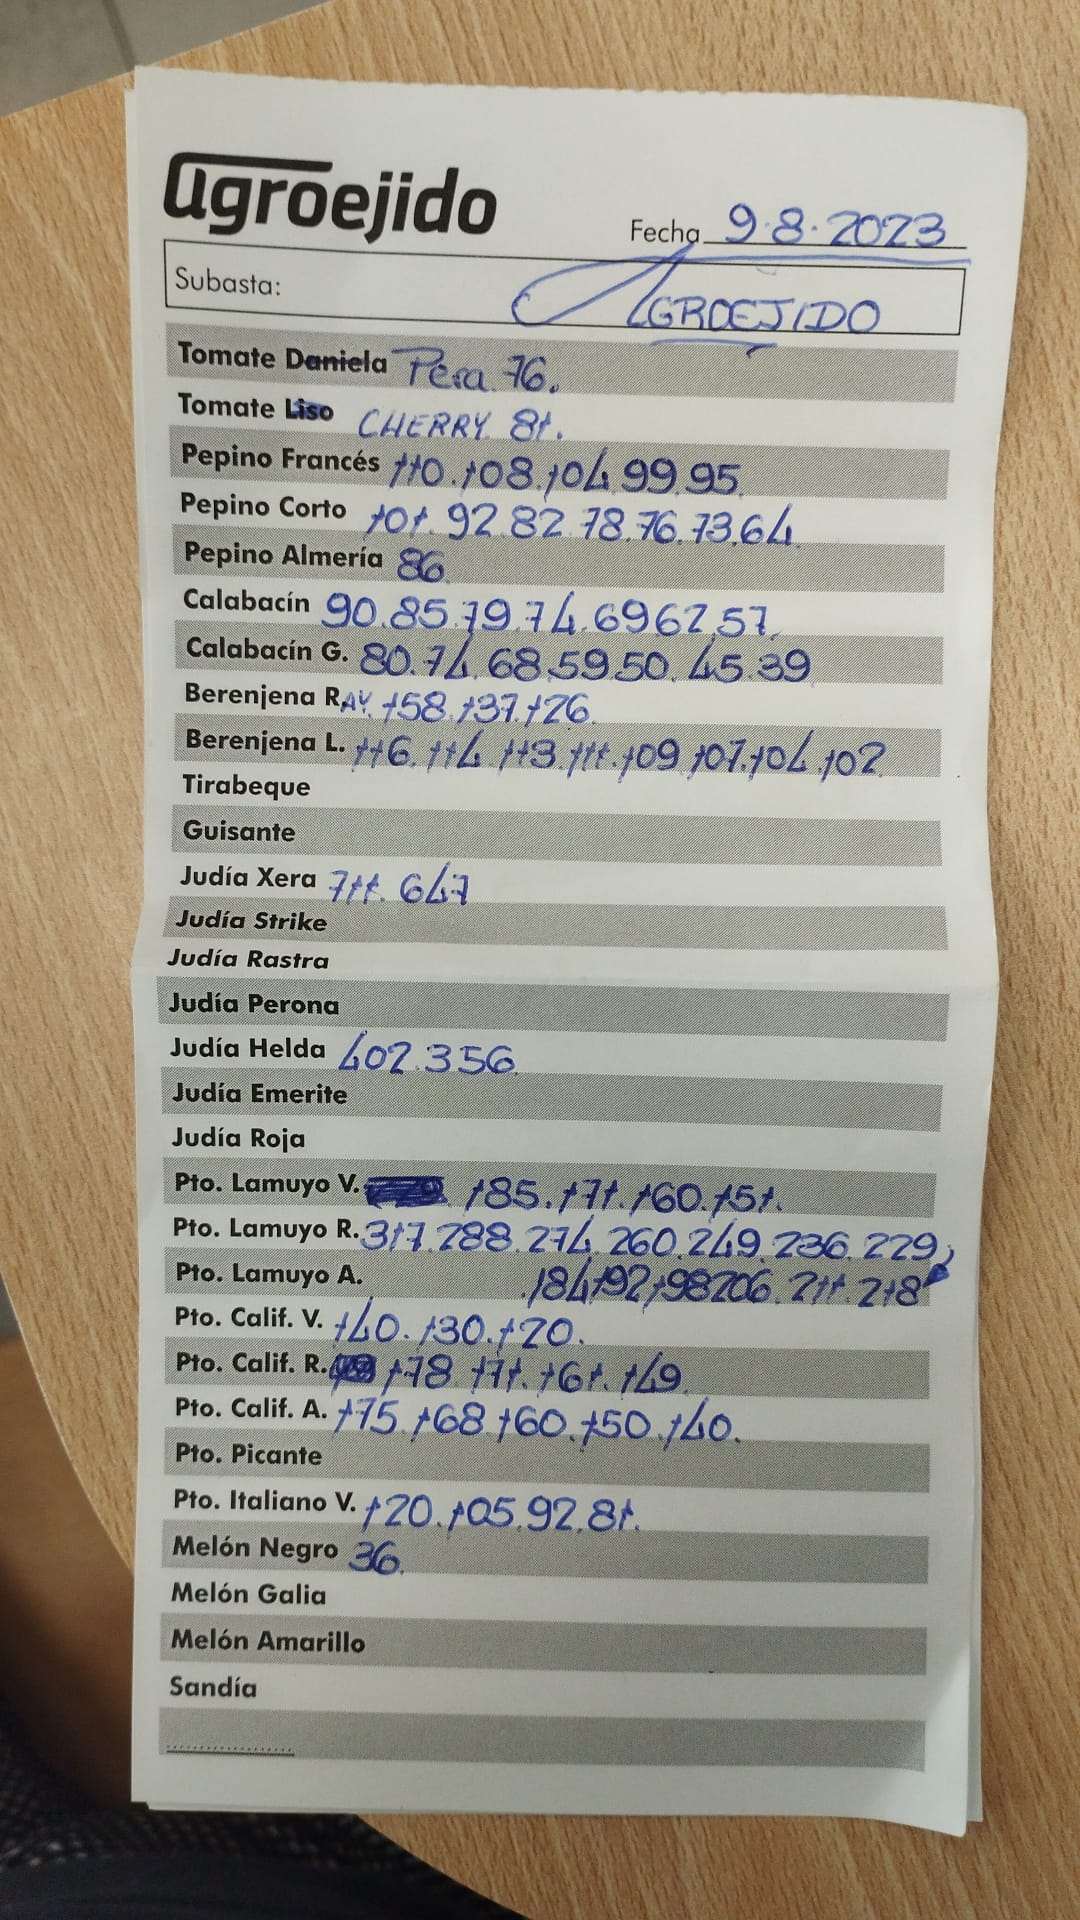 agroejido
Fecha 9.8.2023
Subasta: AGROEJIDO
Tomate Daniela Pera 76.
Tomate Liso CHERRY 81.
Pepino Francés 110.108.104.99.95.
Pepino Corto 101.92.82.78.76.73.64.
Pepino Almería 86.
Calabacín 90.85.79.74.69.62.57.
Calabacín G. 80.74.68.59.50.45.39
Berenjena RAY. 158.137.126.
Berenjena L. 116.114.113.111.109.107.104.102
Tirabeque
Guisante
Judía Xera 711.647
Judía Strike
Judía Rastra
Judía Perona
Judía Helda 402.356.
Judía Emerite
Judía Roja
Pto. Lamuyo V. 185.171.160.151.
Pto. Lamuyo R. 317.288.274.260.249.236.229,
Pto. Lamuyo A. .184.192.198.206.211.218
Pto. Calif. V. 140.130.120.
Pto. Calif. R. 178.171.161.149.
Pto. Calif. A. 175.168.160.150.140.
Pto. Picante
Pto. Italiano V. 120.105.92.81.
Melón Negro 36.
Melón Galia
Melón Amarillo
Sandía